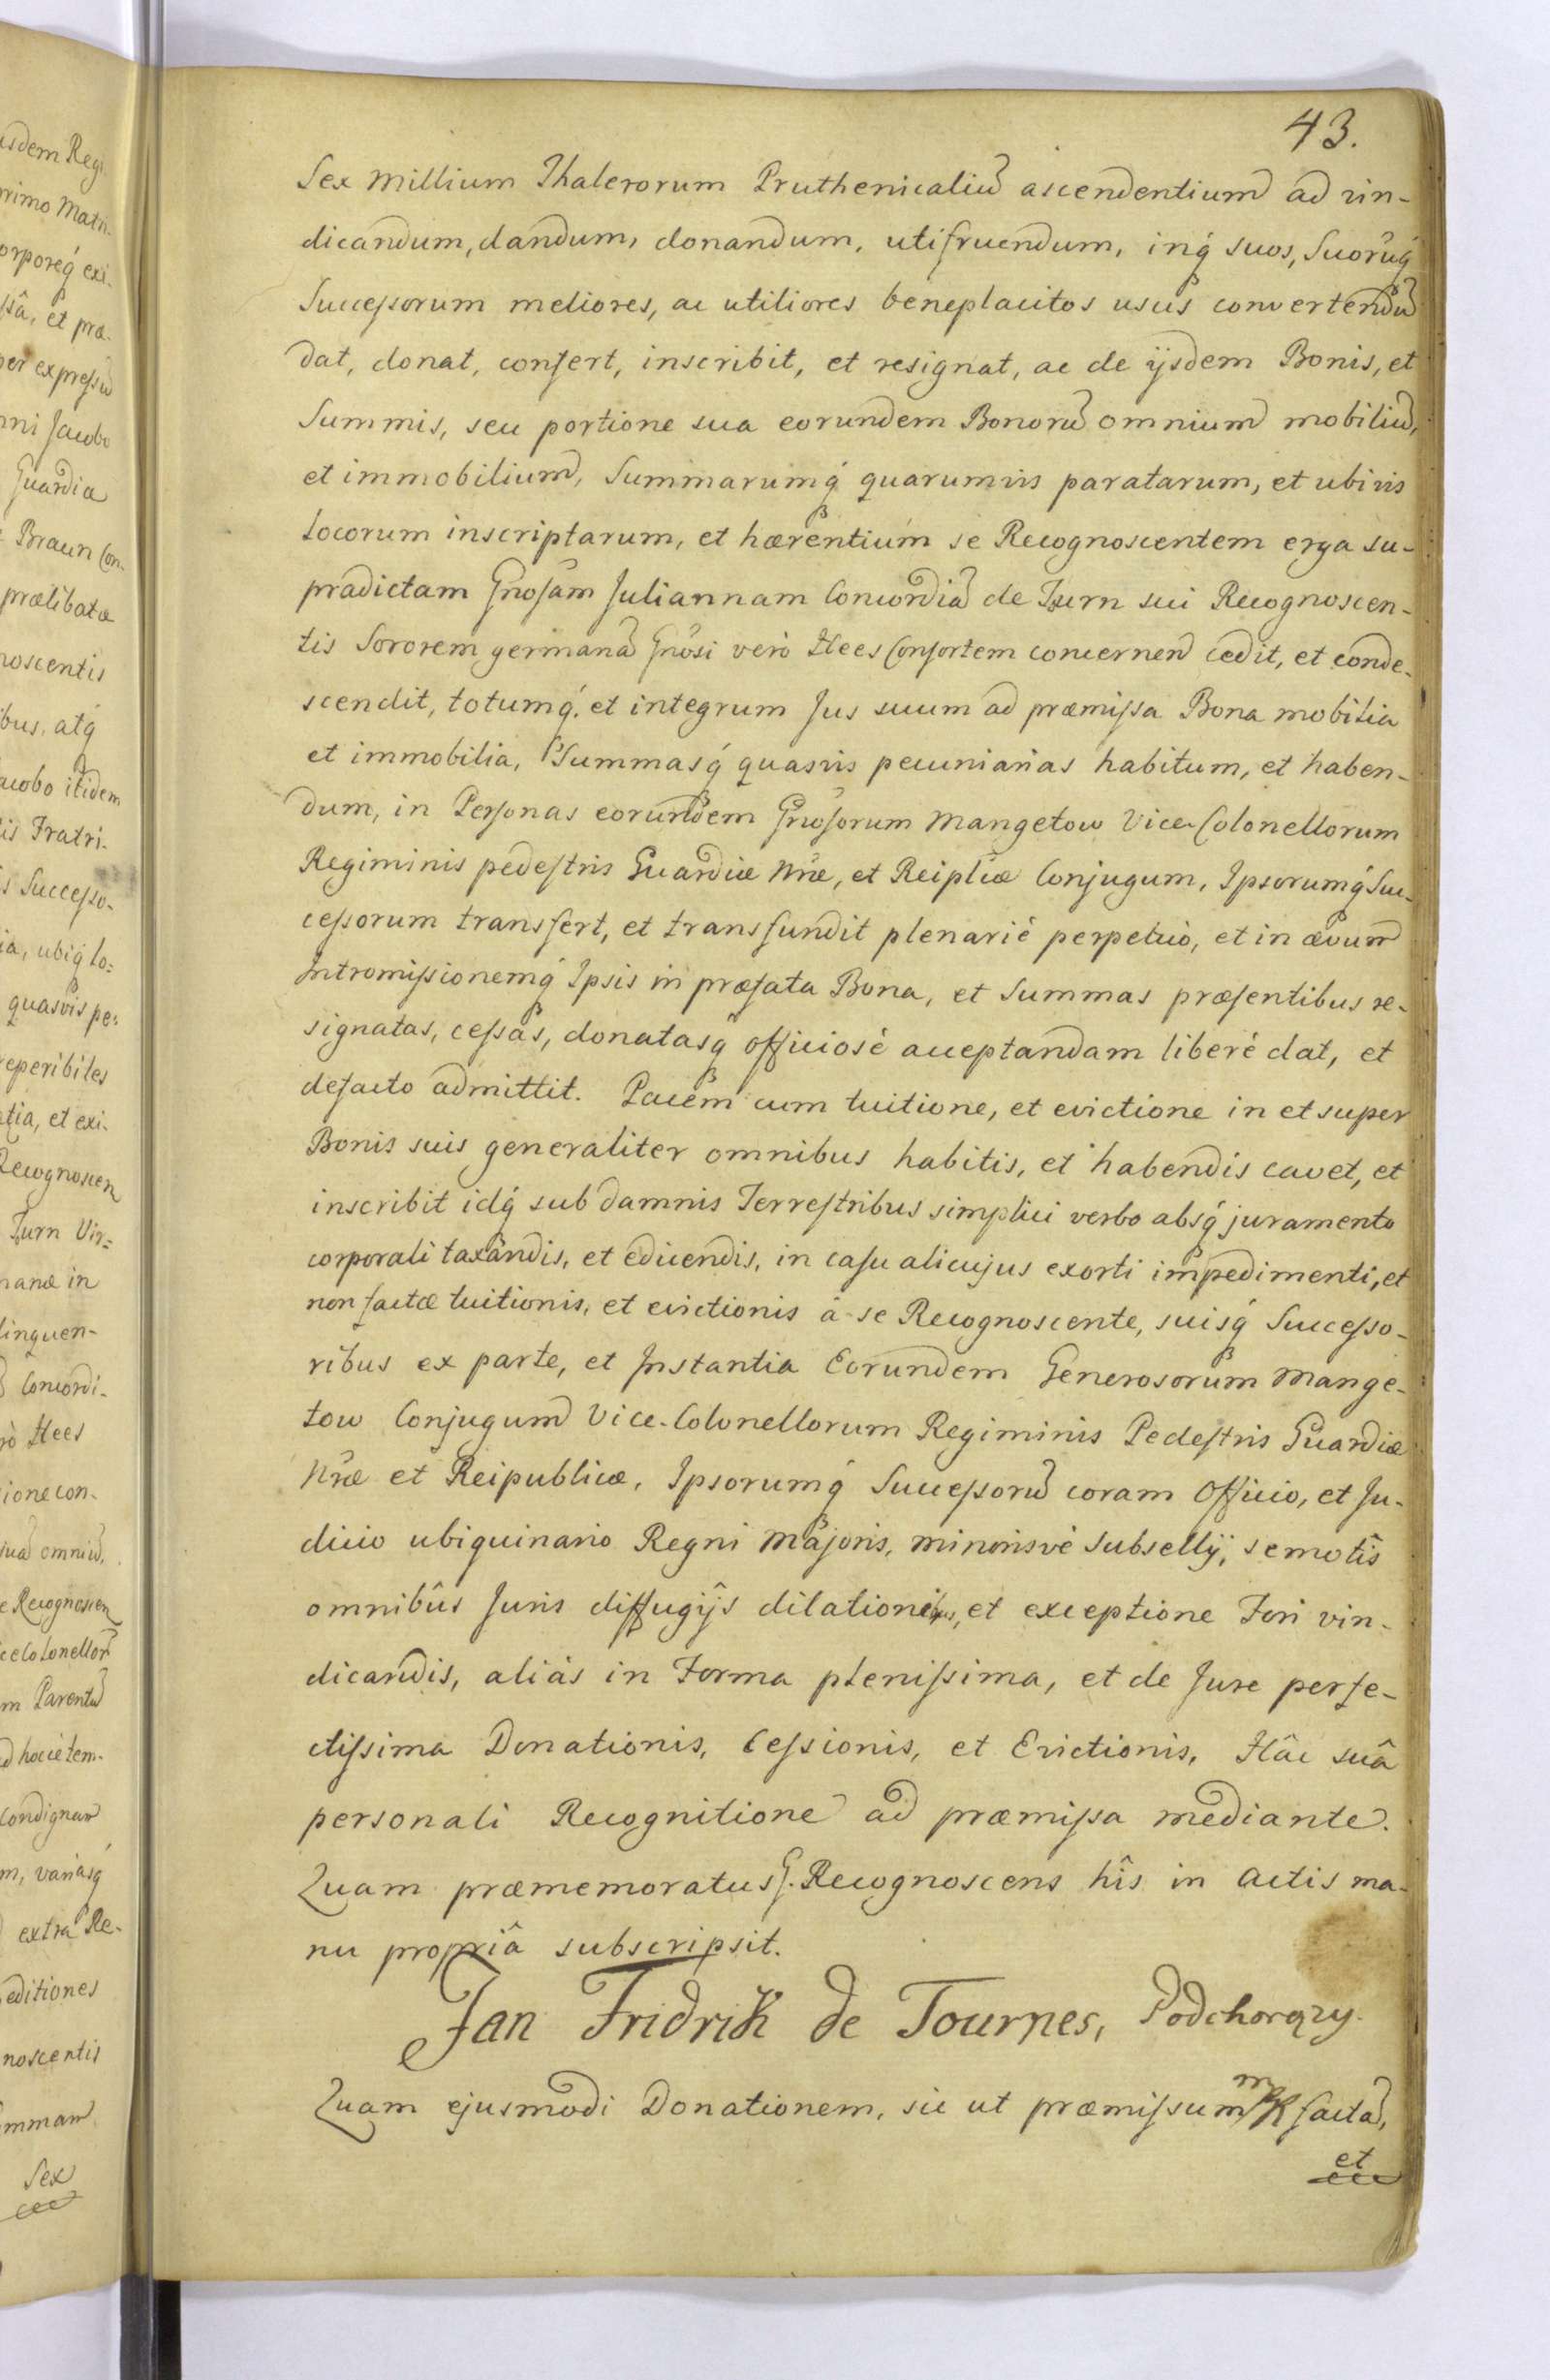 43.
Sex Millium Thalerorum Pruthenicaliũ ascendentium ad vin-
dicandum, dandum, donandum, utifruendum, inq́ suos, Suorũq́
Successorum meliores, ac utiliores beneplacitos usus convertendũ
dat, donat, confert, inscribit, et resignat, ac de ijsdem Bonis, et
Summis, seu portione sua eorundem Bonorũ omnium mobiliũ,
et immobilium, Summarumq́ quarumvis paratarum, et ubivis
locorum inscriptarum, et hærentium se Recognoscentem erga su-
pradictam Gñosam Juliannam Concordiã de Turn sui Recognoscen-
tis Sororem germanã Gñosi verò Hees Consortem concernen̄ cedit, et conde-
scendit, totumq́, et integrum Jus suum ad præmissa Bona mobilia
et immobilia, Summasq́ quasvis pecuniarias habitum, et haben-
dum, in Personas eorundem Gñosorum Mangetow Vice-Colonellorum
Regiminis pedestris Guardiæ Nr̃æ, et Reiplicæ Conjugum, Ipsorumq́ Suc-
cessorum transfert, et transfundit plenariè perpetuò, et in ævum
Intromissionemq́ Ipsis in præfata Bona, et Summas præsentibus re-
signatas, cessas, donatasq́ officiosè acceptandam liberè dat, et
defacto admittit. Pacem cum tuitione, et evictione in et super
Bonis suis generaliter omnibus habitis, et habendis cavet, et
inscribit idq́ sub damnis Terrestribus simplici verbo absq́ juramento
corporali taxandis, et edicendis, in casu alicujus exorti impedimenti, et
non factæ tuitionis, et evictionis à se Recognoscente, suisq́ Successo-
ribus ex parte, et Instantia Eorundem Generosorum Mange-
tow Conjugum Vice-Colonellorum Regiminis Pedestris Guardiæ
Nr̃æ et Reipublicæ, Ipsorumq́ Successorũ coram Officio, et Ju-
dicio ubiquinario Regni Majoris, minorisvè Subsellij, semotîs
omnibûs Juris diffugijs dilationibus, et exceptione Fori vin-
dicandis, aliàs in Forma plenissima, et de Jure perfe-
ctissima Donationis, Cessionis, et Evictionis, Hâc suâ
personali Recognitione ad præmissa mediante.
Quam præmemoratus G. Recognoscens hîs in Actis ma-
nu propriâ subscripsit.
Jan Fridrik de Tournes, Podchorąży.
Quam ejusmodi Donationem, sic ut præmissum factã,
et